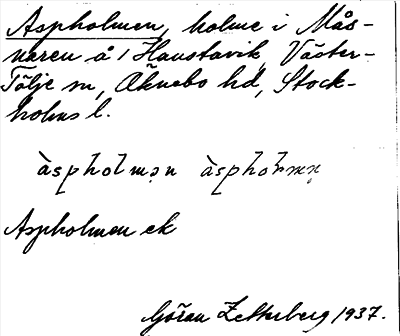 Aspholmen, holme i Mås-
naren å 1 Hanstavik, Väster-
Tölje sn, Öknebo hd, Stock-
holms l.
àspholmən àspholmn̥
Aspholmen ek
Göran Zetterberg 1937.